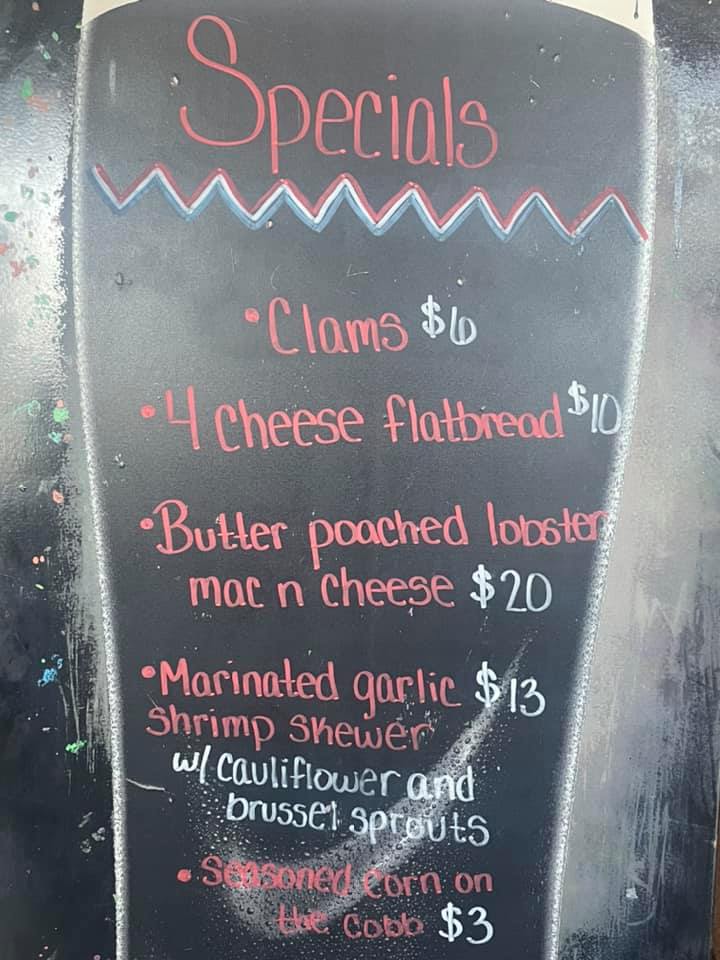 Specials
•Clams $6
•4 Cheese flatbread $10
•Butter poached lobster
mac n cheese $20
•Marinated garlic $13
Shrimp Skewer
w/ cauliflower and
brussel sprouts
•Seasoned corn on
the Cobb $3